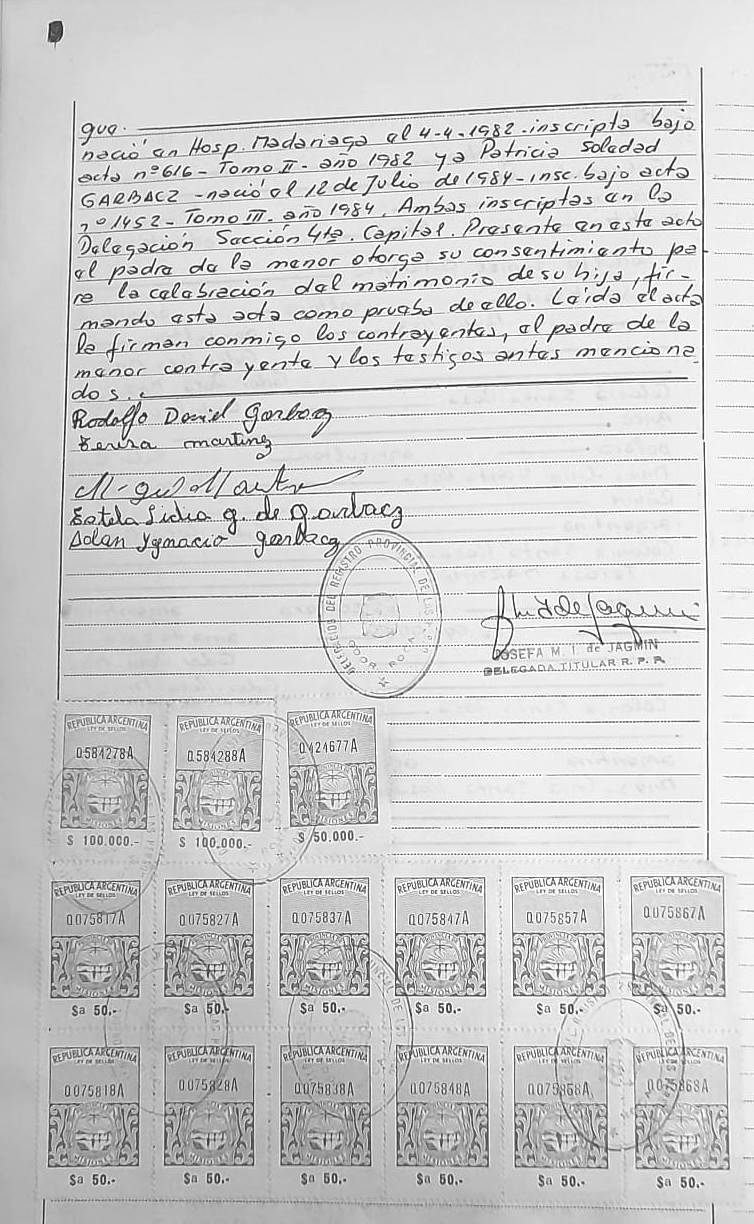 gua.
nació en Hosp. Madariaga el 4-4-1982-inscripta bajo
acta nº 616- Tomo II- año 1982 y a Patricia Soledad
GARBACZ -nació el 12 de Julio de 1984-insc. bajo acta
nº 1452- Tomo III- año 1984. Ambas inscriptas en la
Delegación Sección 4ta. Capital. Presente en este acto
el padre de la menor otorga su consentimiento pa-
ra la celebración del matrimonio de su hija, fir-
mando esta acta como prueba de ello. Leída el acta
la firman conmigo los contrayentes, el padre de la
menor contrayente y los testigos antes menciona
dos..
Rodolfo Daniel Garbacz
Teresa martinez
Estela Lidia g. de garbacz
Ignacio garbacz
DELEGACION DEL REGISTRO PROVINCIAL DE LAS
GDOR. ROCA
JOSEFA M. I. de JAGMIN
DELEGADA TITULAR R. P. P.
REPUBLICA ARGENTINA REPUBLICA ARGENTINA REPUBLICA ARGENTINA
LEY DE SELLOS LEY DE SELLOS LEY DE SELLOS
0584278A 0584288A 0424677A
MISIONES MISIONES MISIONES
$ 100.000.- $ 100.000.- $ 50.000.-
REPUBLICA ARGENTINA REPUBLICA ARGENTINA REPUBLICA ARGENTINA REPUBLICA ARGENTINA REPUBLICA ARGENTINA REPUBLICA ARGENTINA
LEY DE SELLOS LEY DE SELLOS LEY DE SELLOS LEY DE SELLOS LEY DE SELLOS LEY DE SELLOS
0075817A 0075827A 0075837A 0075847A 0075857A 0075867A
MISIONES MISIONES MISIONES MISIONES MISIONES MISIONES
$a 50.- $a 50.- $a 50.- $a 50.- $a 50.- $a 50.-
REPUBLICA ARGENTINA REPUBLICA ARGENTINA REPUBLICA ARGENTINA REPUBLICA ARGENTINA REPUBLICA ARGENTINA REPUBLICA ARGENTINA
LEY DE SELLOS LEY DE SELLOS LEY DE SELLOS LEY DE SELLOS LEY DE SELLOS LEY DE SELLOS
0075818A 0075828A 0075838A 0075848A 0075868A
MISIONES MISIONES MISIONES MISIONES MISIONES MISIONES
$a 50.- $a 50.- $a 50.- $a 50.- $a 50.- $a 50.-